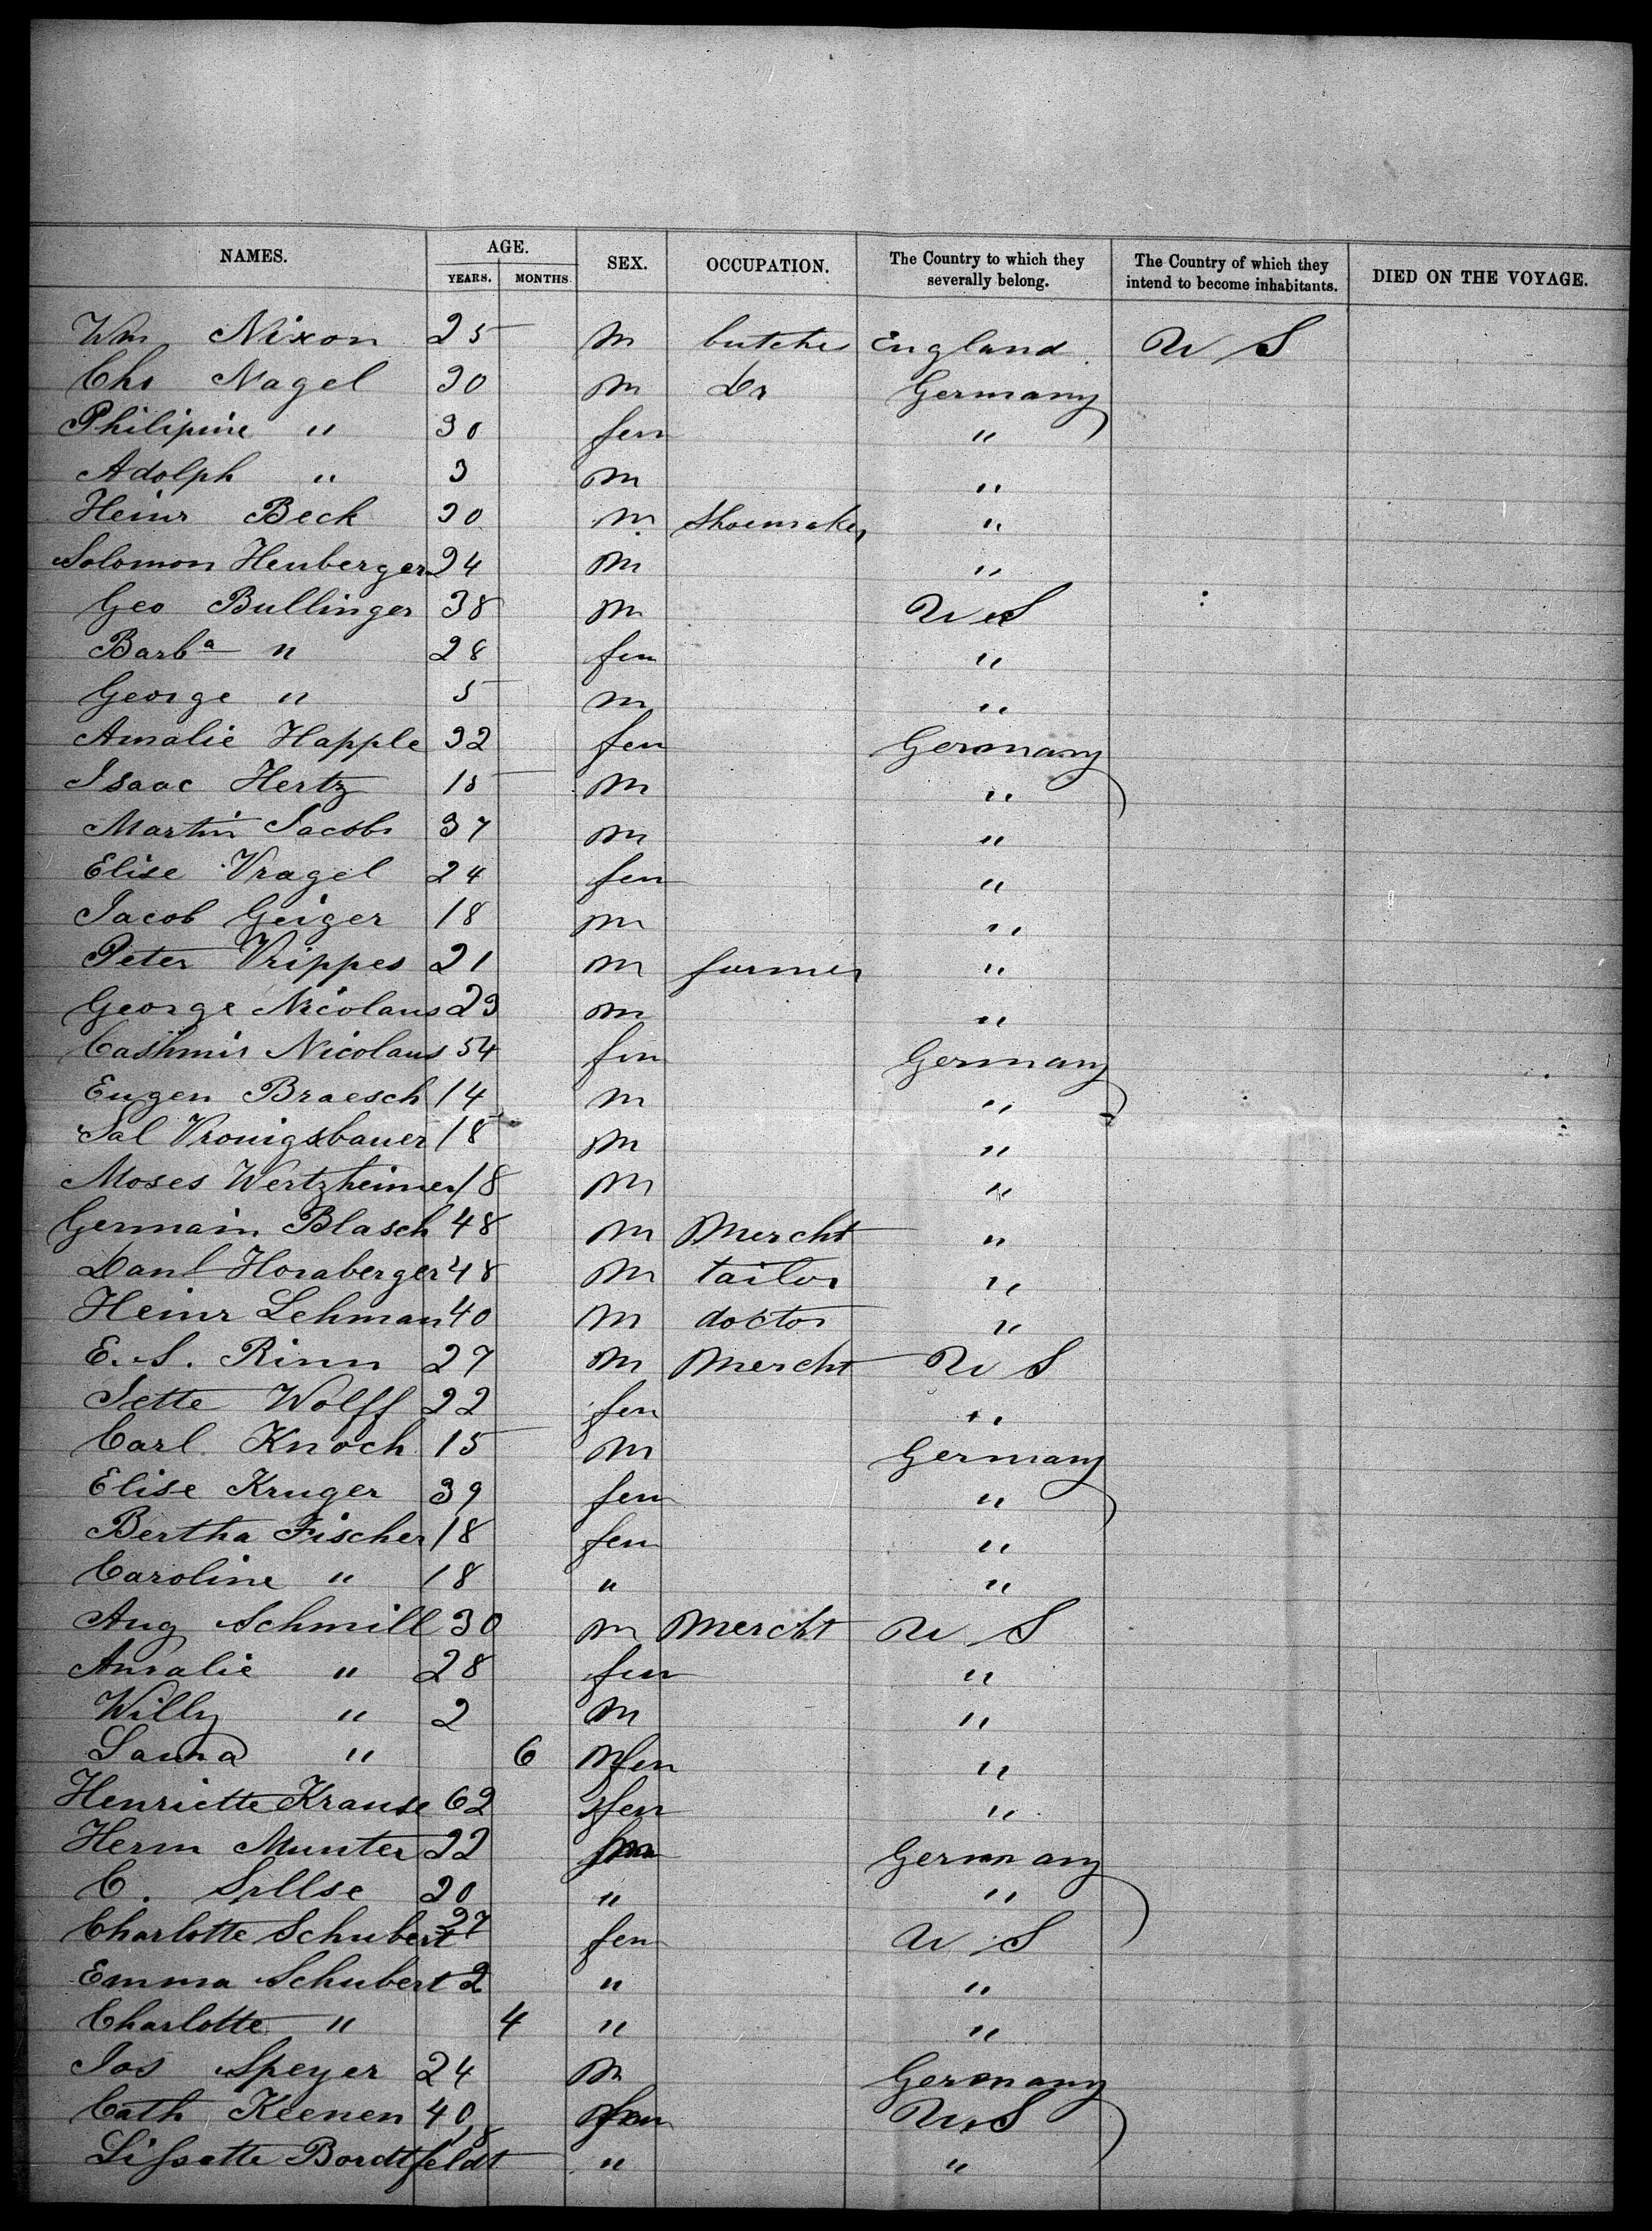 NAMES. AGE. SEX. OCCUPATION. The Country to which they severally belong. The Country of which they intend to become inhabitants. DIED ON THE VOYAGE.
YEARS. MONTHS.
Wm Nixon 25 m butcher England U S
Chs Nagel 30 m Do Germany
Philipine " 30 fem "
Adolph " 3 m "
Heinr Beck 30 m Shoemaker "
Solomon Heuberger 24 m "
Geo Bullinger 38 m U S
Barbª " 28 fem "
George " 5 m "
Amalie Happle 32 fem Germany
Isaac Hertz 15 m "
Martin Jacobs 37 m "
Elise Vragel 24 fem "
Jacob Geiger 18 m "
Peter Vrippes 21 m farmer "
George Nicolaus 29 m "
Cashmir Nicolaus 54 fem Germany
Eugen Braesch 14 m "
Sal Vronigsbauer 18 m "
Moses Wertzheimer 18 m "
Germain Blasch 48 m Mercht "
Danl Horaberger 48 m tailor "
Heinr Lehman 40 m doctor "
E. S. Rinn 27 m Mercht U S
Jette Wolff 22 fem "
Carl Knoch 15 m Germany
Elise Kruger 39 fem "
Bertha Fischer 18 fem "
Caroline " 18 " "
Aug Schmill 30 m Mercht U S
Amalie " 28 fem "
Willy " 2 m "
Laura " 6 fem "
Henriette Krause 62 fem "
Herm Munter 22 Germany
C. Sillse 20 " "
Charlotte Schubert 27 fem U S
Emma Schubert 2 " "
Charlotte " 4 " "
Jos Speyer 24 m Germany
Cath Keenen 40 fem U S
Lissette Bordtfeldt 18 " "